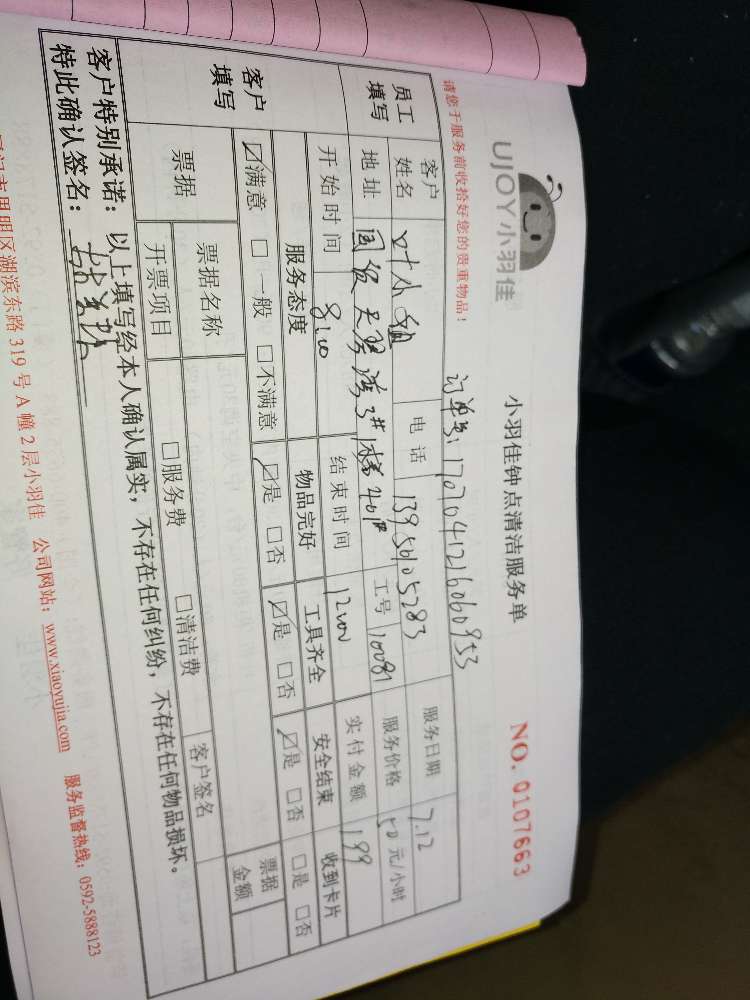 UJOY小羽佳
小羽佳钟点清洁服务单
NO. 0107663
请您于服务前收拾好您的贵重物品！
订单号: 1707041216060953
员工填写 客户姓名 叶小姐 电话 13950105283 服务日期 7.12
地址 国贸天琴湾3#楼701# 工号 10081 服务价格 50元/小时
开始时间 8:00 结束时间 1200 实付金额 199
客户填写 服务态度 物品完好 工具齐全 安全结束 收到卡片
☑满意 □一般 □不满意 ☑是 □否 ☑是 □否 ☑是 □否 □是 □否
票据 票据名称 客户签名 票据金额
开票项目 □服务费 □清洁费
客户特别承诺：以上填写经本人确认属实，不存在任何纠纷，不存在任何物品损坏。
特此确认签名：
明区湖滨东路 319 号 A 幢 2 层小羽佳 公司网站：www.xiaoyujia.com 服务监督热线：0592-5888123